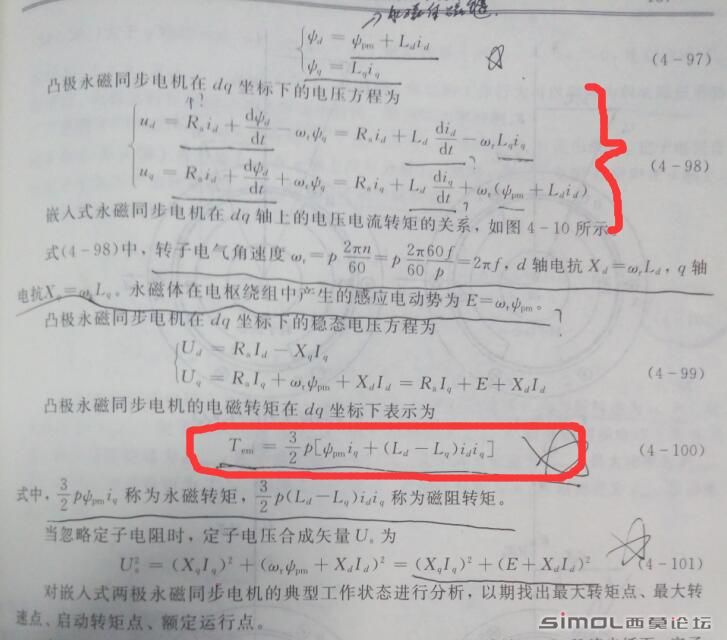 ψd = ψpm + Ldid
ψq = Lqiq (4-97)
凸极永磁同步电机在 dq 坐标下的电压方程为
ud = Raid + dψd/dt − ωrψq = Raid + Ld did/dt − ωrLqiq
uq = Raiq + dψd/dt + ωrψq = Raiq + Ld diq/dt + ωr(ψpm + Ldid) (4-98)
嵌入式永磁同步电机在 dq 轴上的电压电流转矩的关系，如图 4-10 所示
式(4-98)中，转子电气角速度 ωr = p 2πn/60 = p 2π60f/60 p = 2πf，d 轴电抗 Xd=ωrLd，q 轴
电抗Xq=ωrLq。永磁体在电枢绕组中产生的感应电动势为 E=ωrψpm。
?
凸极永磁同步电机在 dq 坐标下的稳态电压方程为
Ud = RaId − XqIq
Uq = RaIq + ωrψpm + XdId = RaIq + E + XdId (4-99)
凸极永磁同步电机的电磁转矩在 dq 坐标下表示为
Tem = 3/2 p[ψpmiq + (Ld − Lq)idiq] (4-100)
式中，3/2 pψpmiq 称为永磁转矩，3/2 p(Ld − Lq)idiq 称为磁阻转矩。
当忽略定子电阻时，定子电压合成矢量 Us 为
Us² = (XqIq)² + (ωrψpm + XdId)² = (XqIq)² + (E + XdId)² (4-101)
对嵌入式两极永磁同步电机的典型工作状态进行分析，以期找出最大转矩点、最大转
速点、启动转矩点、额定运行点。
SIMOL西莫论坛